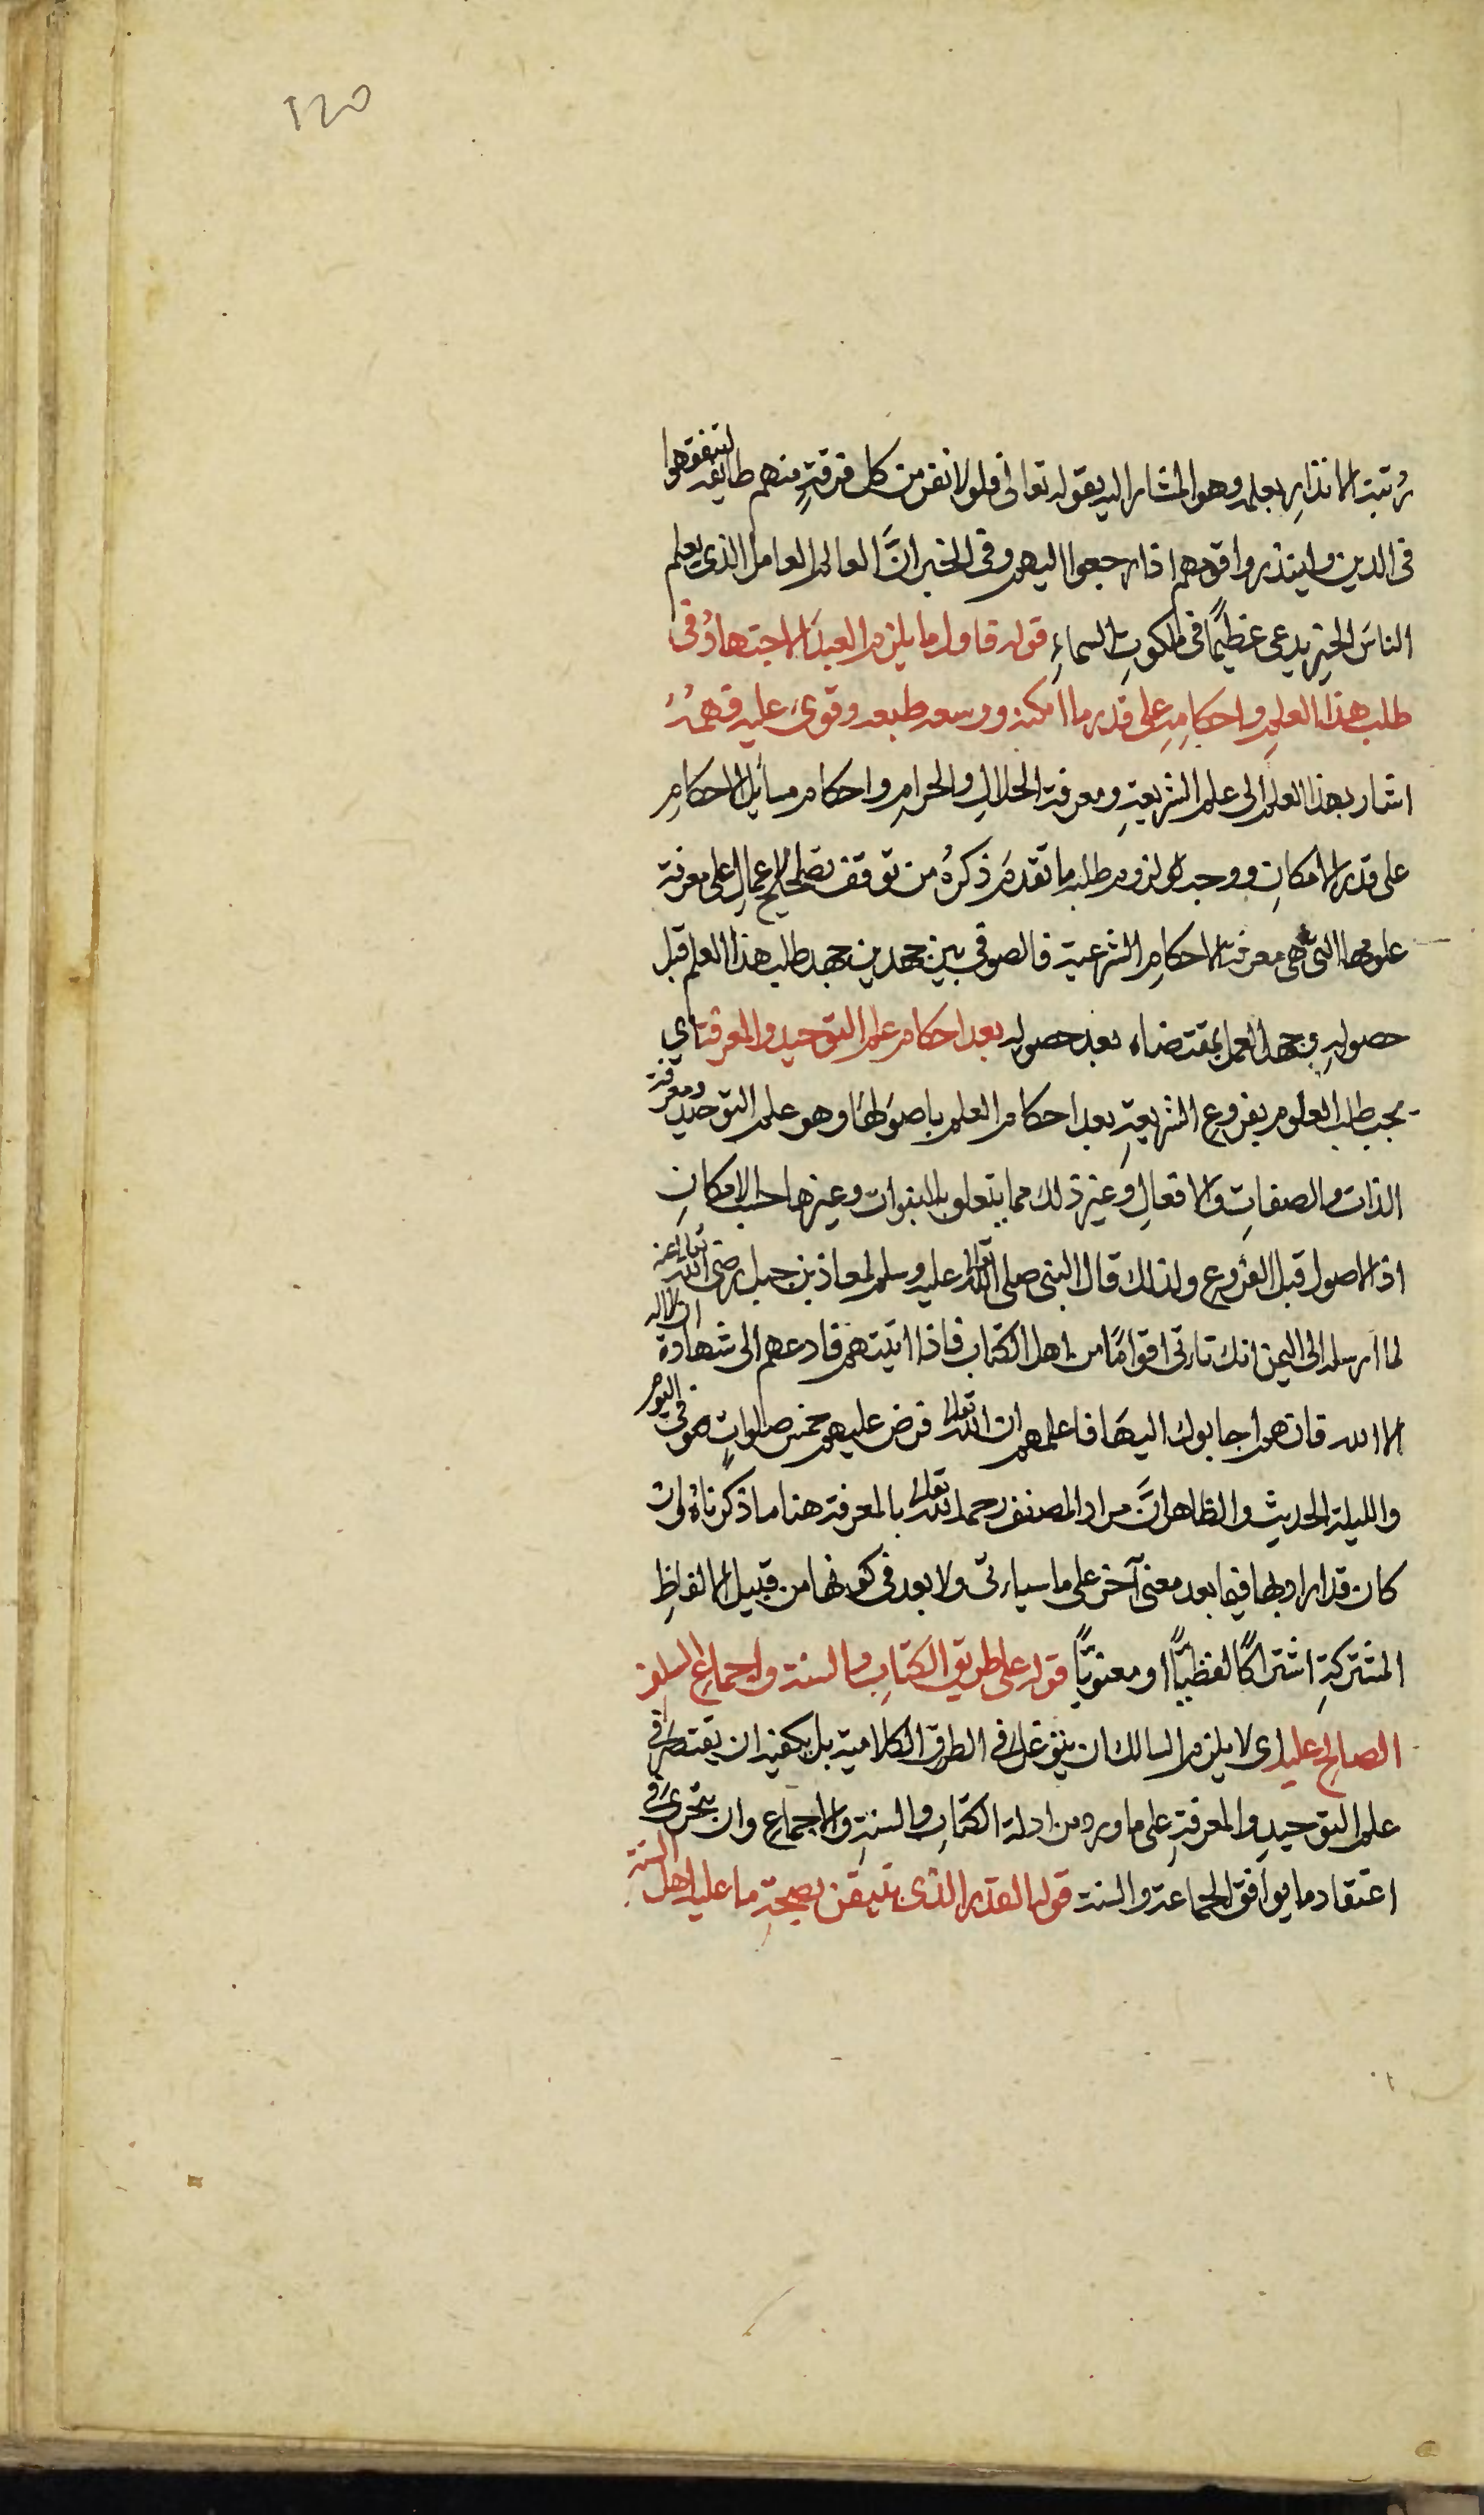 120
رُتبة الانذار بعلمه وهو المشار اليه بقوله تعالى فلولا نفر من كل فرقةٍ منهم طايفة ليتفقهوا
فى الدين ولينذروا قومهم اذا رجعوا اليهم وفى الخبر انَّ العالم العامل الذى يعلم
الناسَ الخير يدعى عظيمًا فى ملكوتِ السماءِ قوله فاول ما يلزم العبدَ الاجتهادُ فى
طلب هذا العلمِ واحكامِهِ على قدر ما امكنه ووسعه طبعه وقوىَ عليه فهمُهُ
اشار بهذا العلم الى علم الشريعةِ ومعرفة الحلالِ والحرامِ واحكام مسائل الاحكامِ
على قدر الامكانِ ووجب لزوم طلبه ما تقدم ذكرهُ من توقف تصحيح الاعمالِ على معرفة
علومها التى هى معرفة الاحكام الشرعية فالصوفى بين جهدين جهد طلب هذا العلم قبل
حصولهِ وجهد العمل بمقتضاه بعد حصوله بعد احكام علم التوحيد والمعرفة اي
يجب طلب العلوم بفروع الشريعةِ بعد احكام العلم باصولها وهو علم التوحيد ومعرفة
الذات والصفاتِ والافعالِ وغير ذلك مما يتعلق بالنبوات وغيرها حسب الامكانِ
اذ الاصول قبل الفروع ولذلك قال النبى صلى الله تعالى عليه وسلم لمعاذ بن جبل رضى الله تعالى عنه
لما ارسله الى اليمن انك تاتى اقوامًا من اهل الكتاب فاذا اتيتهم فادعهم الى شهادة ان لا اله
الا الله فان هم اجابوك اليهَا فاعلمهم ان الله تعالى فرض عليهم خمس صلواتٍ فى اليوم
والليلة الحديث والظاهر انَّ مراد المصنف رحمه الله تعالى بالمعرفة هنا ما ذكرناهُ وان
كان قد اراد بها فيما بعد معنى آخر على ما سياتى ولا بعد فى كونها من قبيل الالفاظِ
المشتركةِ اشتراكًا لفظيًّا او معنويًّا قوله على طريق الكتابِ والسنة واجماع السلف
الصالح عليه اى لا يلزم السالك ان يتوغل فى الطرق الكلامية بل يكفيه ان يقتصر فى
علم التوحيدِ والمعرفةِ على ما ورد من ادلة الكتابِ والسنةِ والاجماعِ وان يتحرى فى
اعتقاده ما يوافق الجماعة والسنة قوله القدر الذى يتيقن بصحةِ ما عليه اهل السنة